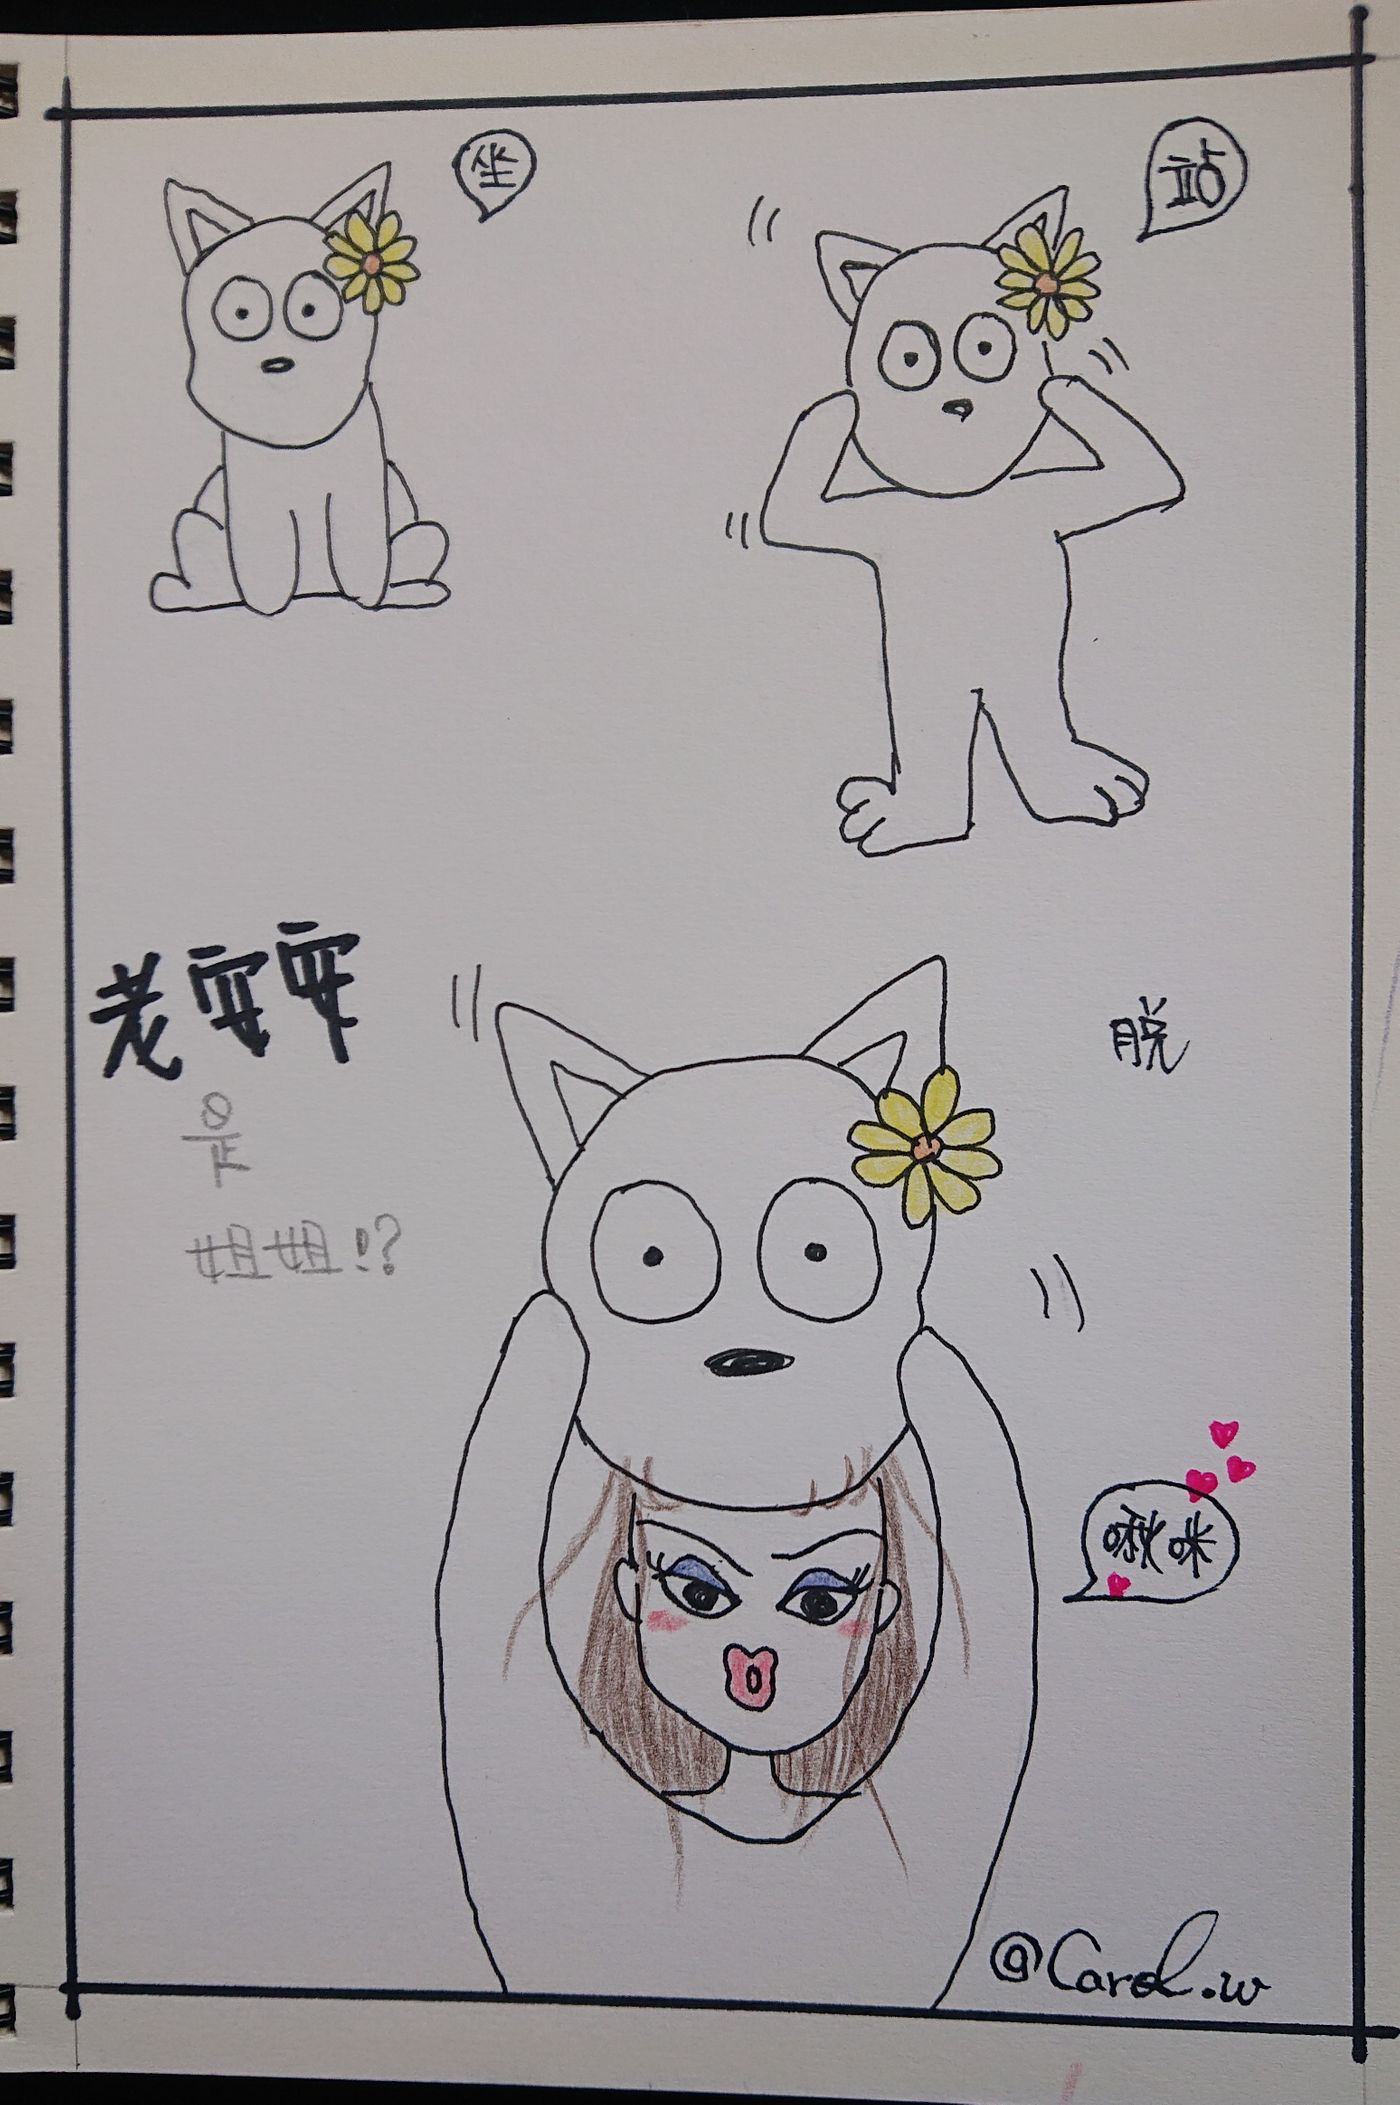 坐
站
老安安
是
姐姐!?
脱
啾咪
@Carol.w